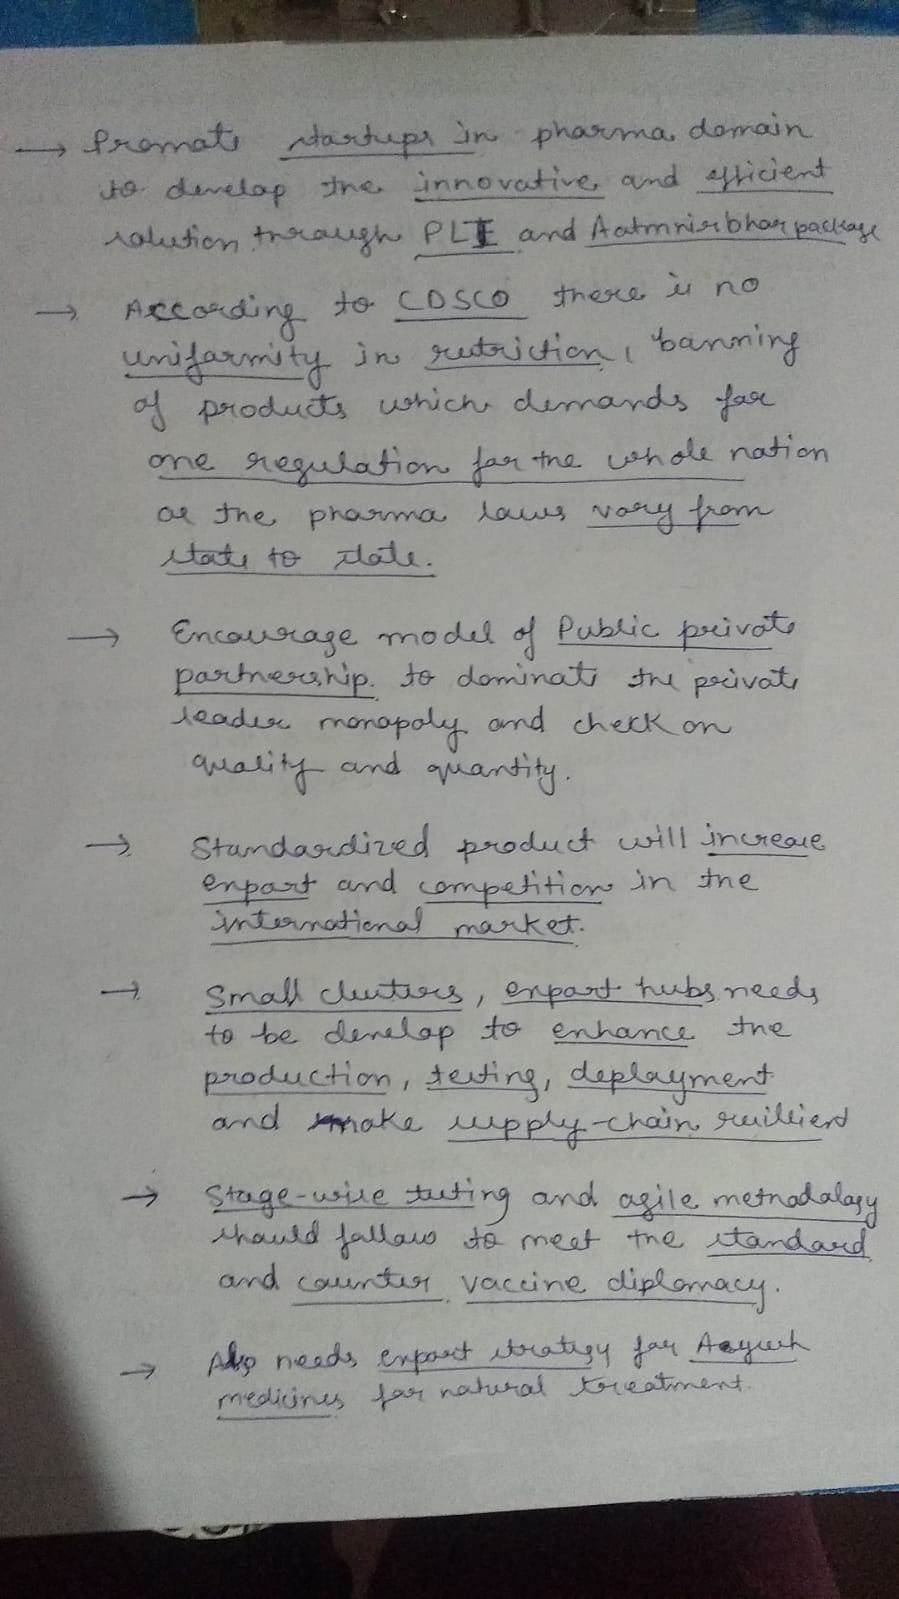 → Promote startups in pharma domain
to develop the innovative and efficient
solution through PLI and Aatmnirbhar package
→ According to CDSCO there is no
uniformity in restriction, banning
of products which demands for
one regulation for the whole nation
as the pharma laws vary from
state to state.
→ Encourage model of Public private
partnership. to dominate the private
leader monopoly and check on
quality and quantity.
→ Standardized product will increase
export and competition in the
international market.
→ Small clusters, export hubs needs
to be develop to enhance the
production, testing, deployment
and make supply-chain resilient
→ Stage-wise testing and agile methodology
should follow to meet the standard
and counter vaccine diplomacy.
→ Also needs export strategy for Aayush
medicines for natural treatment.